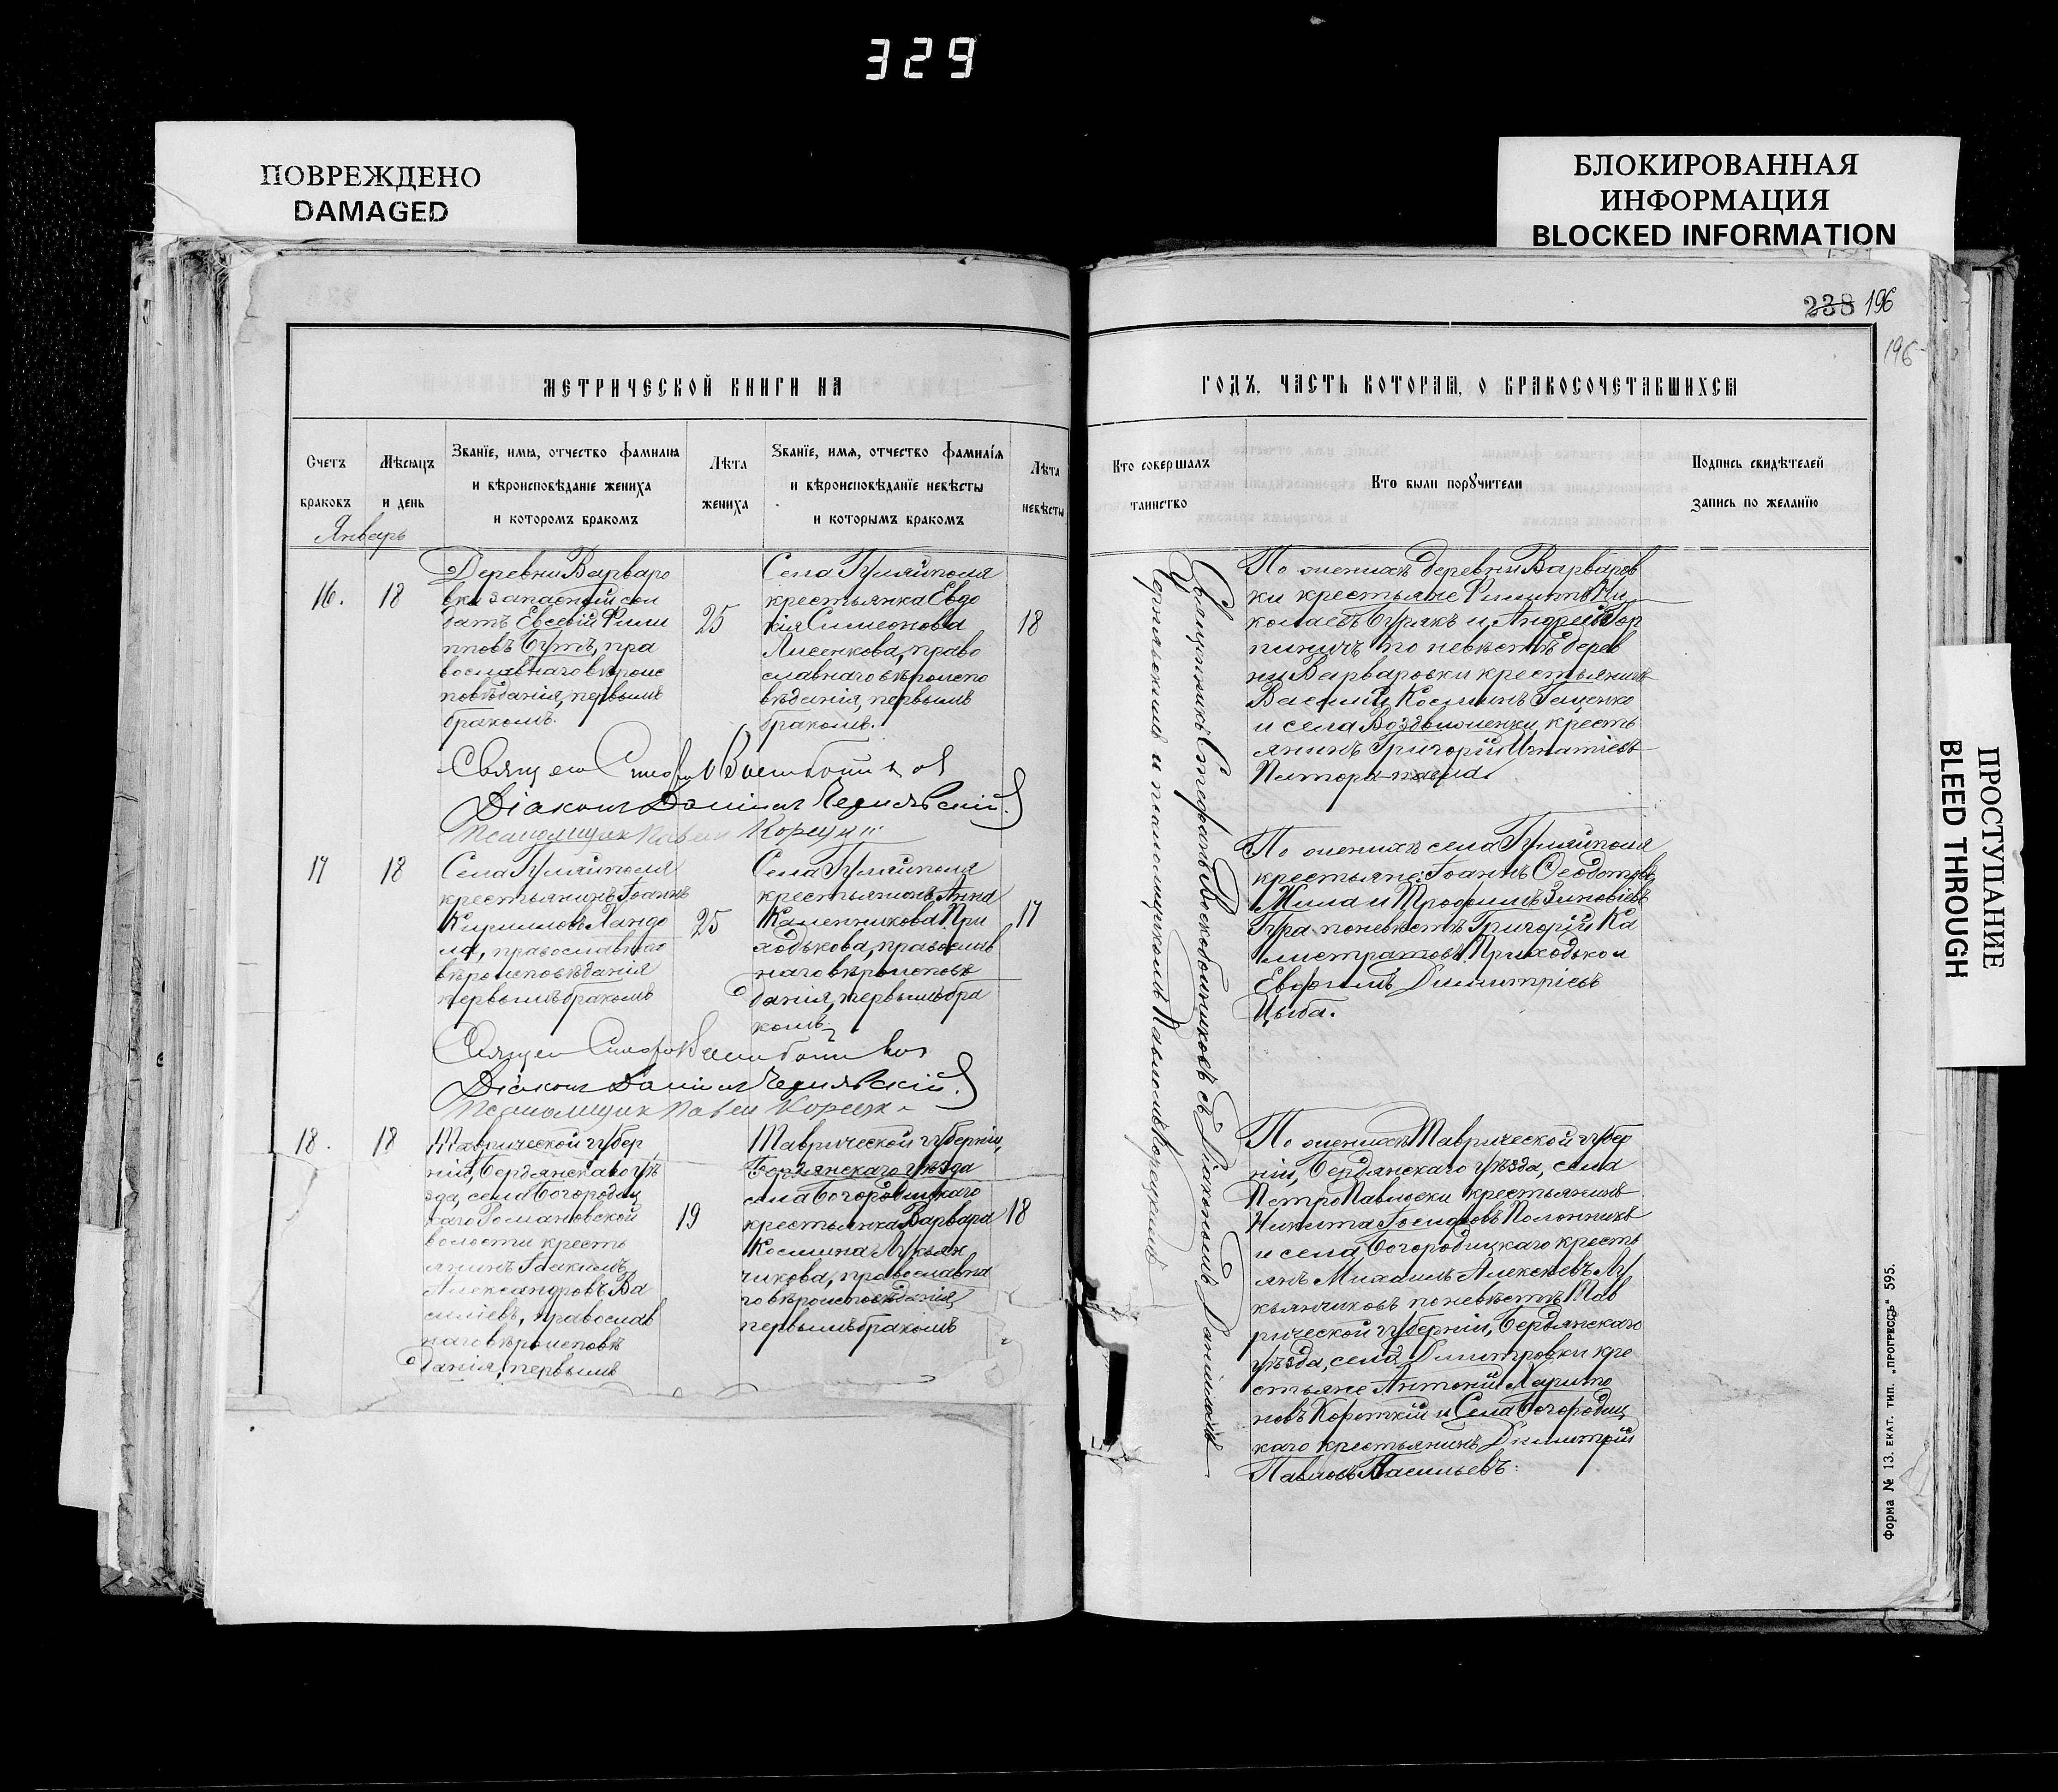 329
ПОВРЕЖДЕНО
DAMAGED
БЛОКИРОВАННАЯ
ИНФОРМАЦИЯ
BLOCKED INFORMATION
238 196
196
МЕТРИЧЕСКОЙ КНИГИ НА
ГОДЪ, ЧАСТЬ ВТОРАЯ, О БРАКОСОЧЕТАВШИХСЯ
Счетъ
браковъ
Мѣсяцъ
и день
Званїе, имя, отчество фамилия
и вѣроисповѣданїе жениха
и которомъ бракомъ
Лѣта
жениха
Званїе, имя, отчество фамилїя
и вѣроисповѣданїе невѣсты
и которымъ бракомъ
Лѣта
невѣсты
Кто совершалъ
таинство
Кто были поручители
Подпись свидѣтелей
запись по желанїю
Январь
16.
18
Деревни Варваро
вки запасной сол
датъ Евсевій Фили
пповъ Бутъ, пра
вославнаго вѣроис
повѣданія, первымъ
бракомъ.
25
Села Гуляйполя
крестьянка Евдо
кія Симеонова
Лисенкова, право
славнаго вѣроиспо
вѣданія, первымъ
бракомъ.
18
По женихѣ деревни Варваров
ки крестьяне Филиппъ Ни
колаевъ Бурякъ и Андрей
по невѣстѣ дерев
ни Варваровки крестьянинъ
Василій Косминъ Гаценко
и села Воздвиженки кресть
янинъ Григорій Игнатіевъ
Діаконъ Даніилъ Чернявскій
Псаломщик Павел Корецкій
17
18
Села Гуляйполя
крестьянинъ Іоаннъ
Кирилловъ Хандо
ла, православнаго
вѣроисповѣданія
первымъ бракомъ
25
Села Гуляйполя
крестьянка Анна
При
ходькова, православ
наго вѣроисповѣ
данія, первымъ бра
комъ
17
По женихѣ села Гуляйполя
крестьяне: Іоаннъ Ѳеодотовъ
Жила и Трофимъ Зиновіевъ
Гура по невѣстѣ Григорій Ка
листратовъ Приходько и
Евфимъ Димитріевъ
Цыба.
Діаконъ Даніилъ Чернявскій
Псаломщик Павел Корецкій
18.
18
Таврической губер
ніи, Бердянскаго уѣ
зда, села Богородиц
каго Романовской
волости кресть
янинъ Іоакимъ
Александровъ Ва
силіевъ, православ
наго вѣроисповѣ
данія, первымъ
19
Таврической губерніи,
Бердянскаго уѣзда
села Богородицкаго
крестьянка Варвара
Космина Лукьян
чикова, православна
го вѣроисповѣданія
первымъ бракомъ
18
По женихѣ Таврической губер
ніи, Бердянскаго уѣзда, села
ПетроПавловки крестьянинъ
Никита Іосифовъ
и села Богородицкаго кресть
янъ Михаилъ Алексѣевъ Лу
кьянчиковъ по невѣстѣ Тав
рической губерніи, Бердянскаго
уѣзда, села Димитровки кре
стьяне Антоній Харито
новъ Короткій и Села Богородиц
каго крестьянинъ Димитрій
Павловъ Васильевъ.
Священникъ Стефанъ Воскобойниковъ съ Діакономъ Даніиломъ
Чернявскимъ и псаломщикомъ Павломъ Корецкимъ
Форма № 13. ЕКАТ. ТИП. „ПРОГРЕССЪ" 595.
ПРОСТУПАНИЕ
BLEED THROUGH